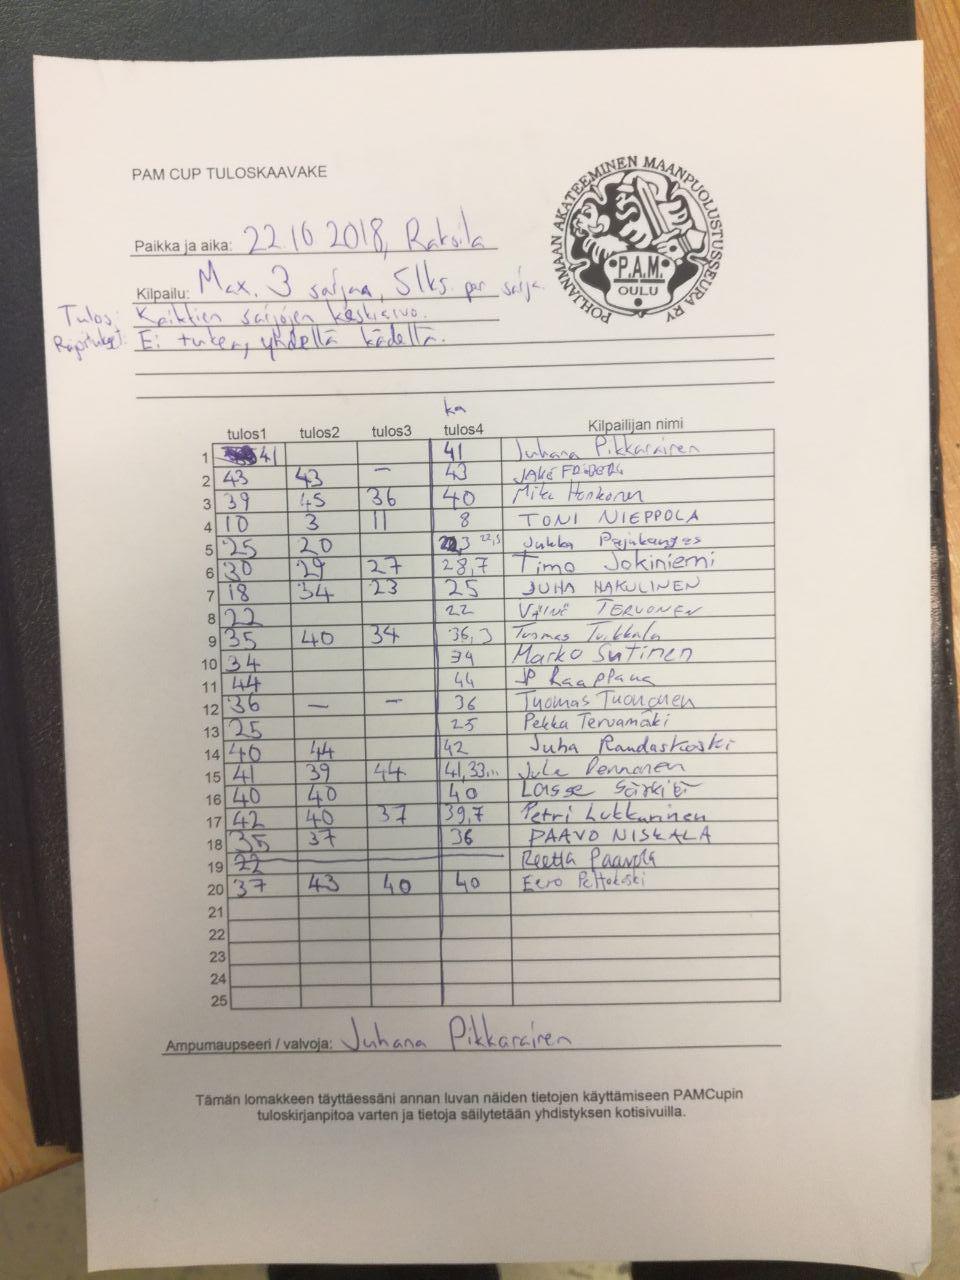 PAM CUP TULOSKAAVAKE
POHJANMAAN AKATEEMINEN MAANPUOLUSTUSSEURA RY
P.A.M.
OULU
Paikka ja aika: 22.10 2018, Raksila
Kilpailu: Max. 3 sarjaa, 5 lks. per sarja.
Tulos: Kaikkien sarjojen keskiarvo.
Ei tukea, yhdellä kädellä.
ka
tulos1 tulos2 tulos3 tulos4 Kilpailijan nimi
1 41 41 Juhana Pikkarainen
2 43 43 — 43 JAKE
3 39 45 36 40 Mika Honkanen
4 10 3 11 8 TONI NIEPPOLA
5 25 20 22,5 Jukka Pajukangas
6 30 29 27 28,7 Timo Jokiniemi
7 18 34 23 25 JUHA HAKULINEN
8 22 22 VÄINÖ TERVONEN
9 35 40 34 36,3 Tuomas Tuikkala
10 34 34 Marko Sutinen
11 44 44 JP Kaappana
12 36 — — 36 Tuomas Tuononen
13 25 25 Pekka Tervamäki
14 40 44 42 Juha Randaskoski
15 41 39 44 41,33... Jula Pennanen
16 40 40 40 Lasse Särkilä
17 42 40 37 39,7 Petri Lukkarinen
18 35 37 36 PAAVO NISKALA
19 22 Reetta Paavola
20 37 43 40 40 Eero Peltokoski
21
22
23
24
25
Ampumaupseeri / valvoja: Juhana Pikkarainen
Tämän lomakkeen täyttäessäni annan luvan näiden tietojen käyttämiseen PAMCupin
tuloskirjanpitoa varten ja tietoja säilytetään yhdistyksen kotisivuilla.